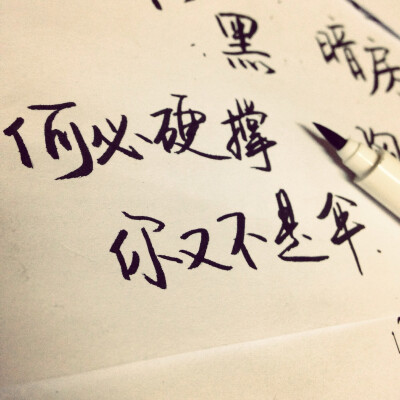 黑 暗房
何必硬撑
你又不是伞.